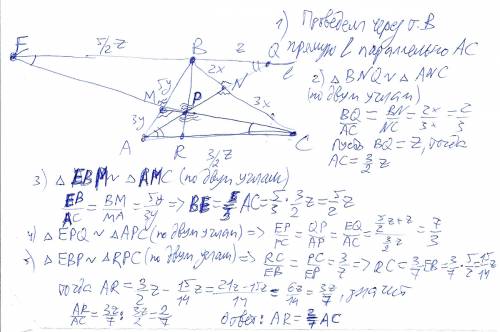 E
5/2 z
B
z
Q
l
2x
N
5y
M
P
3y
3x
A
R
3/2 z
C
1) Проведем через т. B
прямую l параллельно AC
2) △BNQ ~ △ANC
(по двум углам)
BQ/AC = BN/NC = 2x/3x = 2/3
Пусть BQ = z, тогда
AC = 3/2 z
3) △EBM ~ △AMC (по двум углам)
EB/AC = BM/MA = 5y/3y => BE = 5/3 AC = 5/3 · 3/2 z = 5/2 z
4) △EPQ ~ △APC (по двум углам) => EP/PC = QP/AP = EQ/AC = (5/2 z + z)/(3/2 z) = 7/3
5) △EBP ~ △RPC (по двум углам) => RC/EB = PC/EP = 3/7 => RC = 3/7 EB = 3/7 · 5/2 z = 15/14 z
тогда AR = 3/2 z - 15/14 z = (21z - 15z)/14 = 6z/14 = 3z/7, значит
AR/AC = 3z/7 : 3z/2 = 2/7
Ответ: AR = 2/7 AC